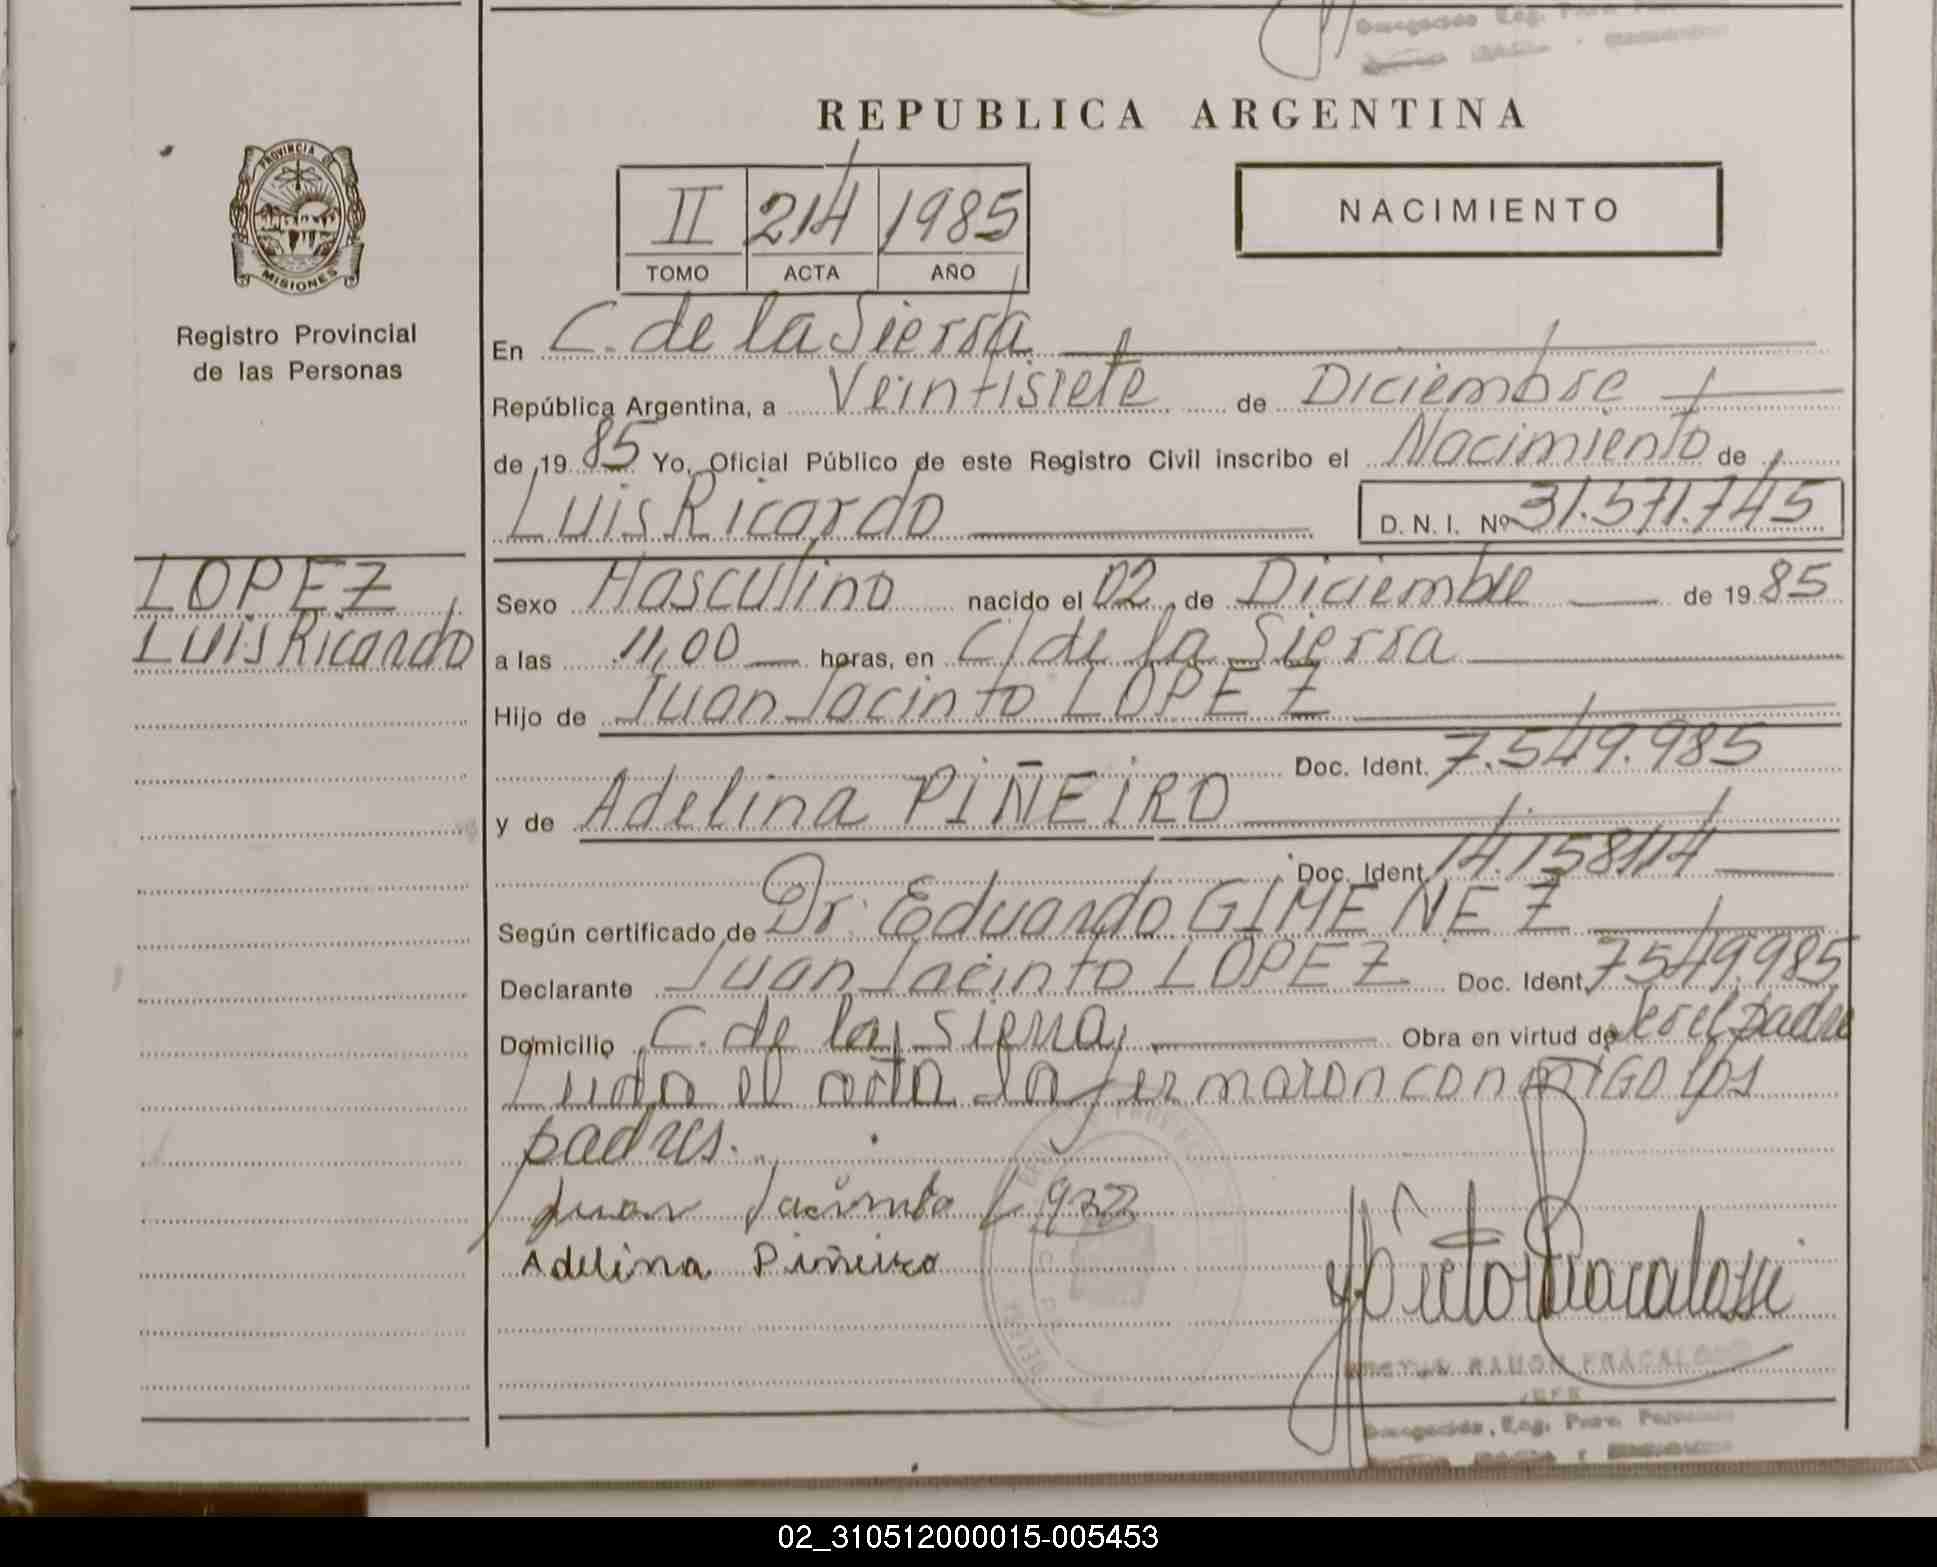 REPUBLICA ARGENTINA
PROVINCIA DE
MISIONES
Registro Provincial
de las Personas
II 214 1985
TOMO ACTA AÑO
NACIMIENTO
En C. de la Sierra
República Argentina, a Veintisiete de Diciembre
de 1985 Yo, Oficial Público de este Registro Civil inscribo el Nacimiento de
Luis Ricardo D. N. I. Nº 31.571.745
LOPEZ
Luis Ricardo
Sexo Masculino nacido el 02 de Diciembre de 1985
a las 11,00 horas, en C/ de la Sierra
Hijo de Juan Jacinto LOPEZ
Doc. Ident. 7.549.985
y de Adelina PIÑEIRO
Doc. Ident. 14.158114
Según certificado de Dr. Eduardo GIMENEZ
Declarante Juan Jacinto LOPEZ Doc. Ident. 7549.985
Domicilio C. de la Sierra Obra en virtud de ser el padre
Leida el acta la firmaron conmigo los
padres.
Juan Jacinto
Adelina Piñeiro
RAMON FRACALOSSI
JEFE
02_310512000015-005453